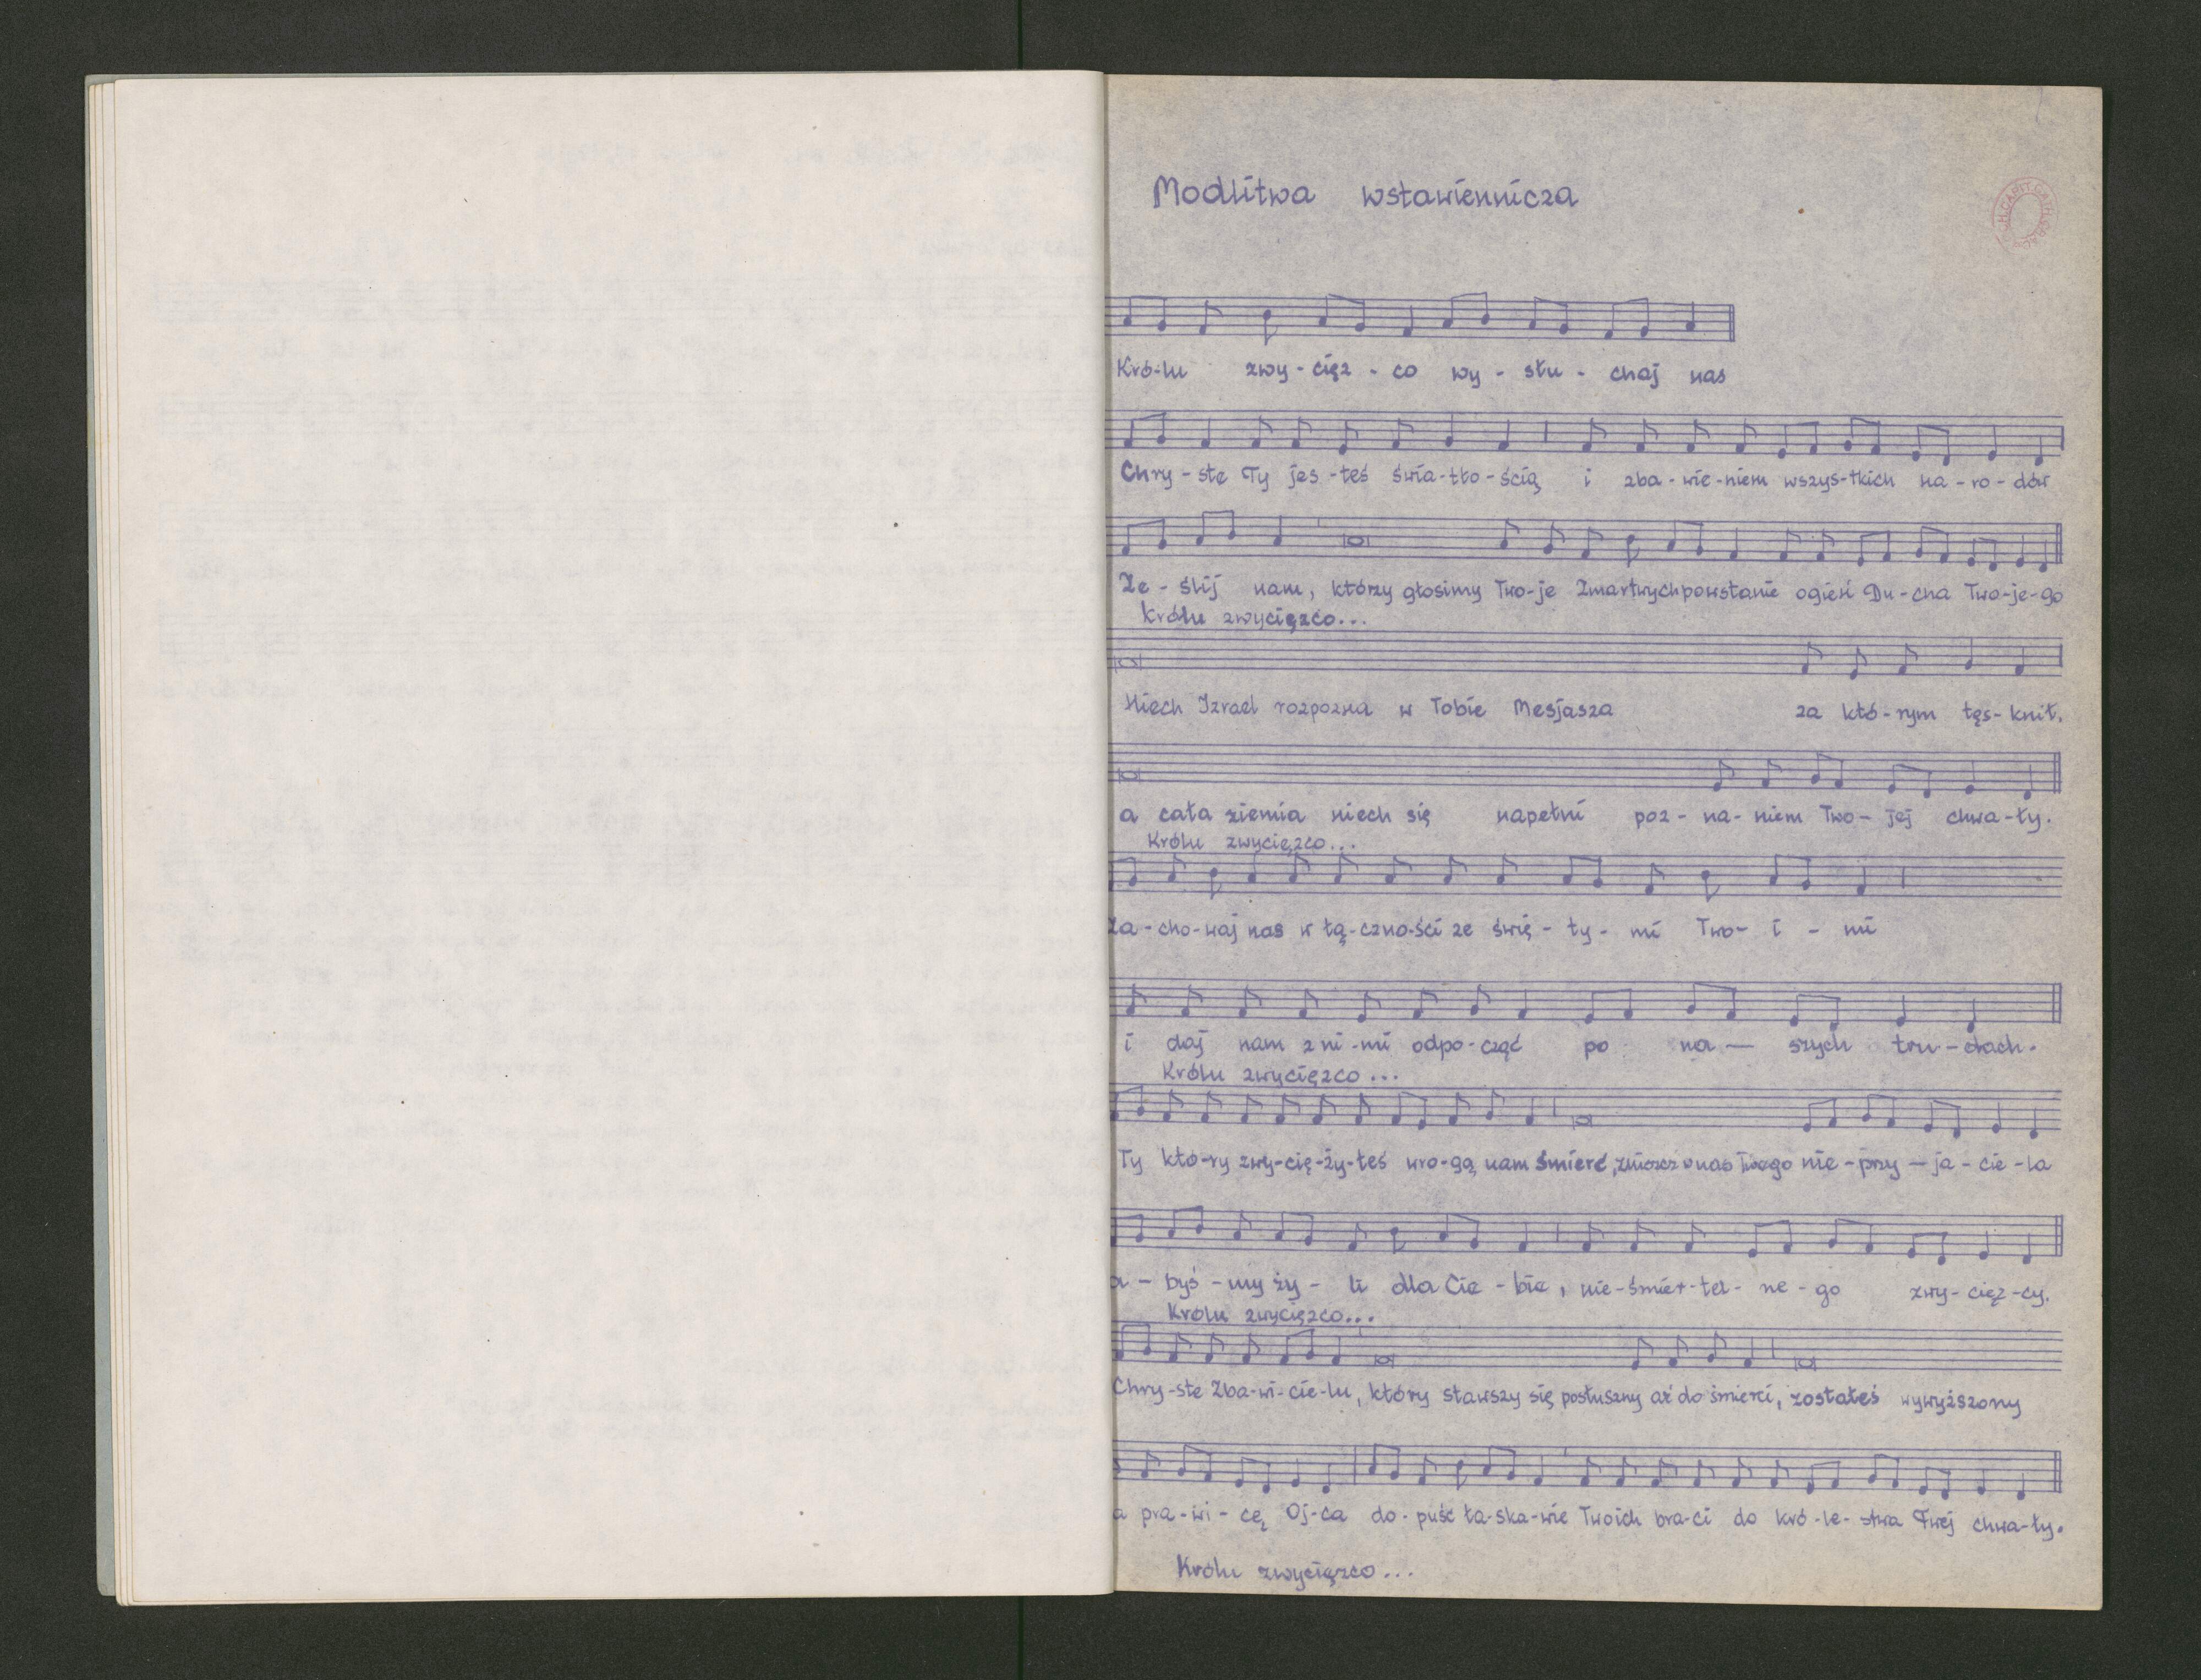 Modlitwa wstawiennicza
Kró-lu zwy-cięz-co wy-słu-chaj nas
Chry-ste Ty jes-teś świa-tło-ścią i zba-wie-niem wszys-tkich na-ro-dów
Ze-ślij nam, którzy głosimy Two-je Zmartwychpowstanie ogień Du-cha Two-je-go
Królu zwycięzco...
Niech Izrael rozpozna w Tobie Mesjasza za któ-rym tęs-knił.
a cała ziemia niech się napełni poz-na-niem Two-jej chwa-ły.
Królu zwycięzco...
Za-cho-waj nas w łą-czno-ści ze świę-ty-mi Two-i-mi
i daj nam z ni-mi odpo-cząć po na— szych tru-dach.
Królu zwycięzco...
Ty któ-ry zwy-cię-ży-łeś wro-gą nam śmierć, zniszcz w nas Twego nie-przy-ja-cie-la
a-byś-my ży-li dla Cie-bie, nie-śmier-tel-ne-go zwy-cięz-cy.
Królu zwycięzco...
Chry-ste Zba-wi-cie-lu, który stawszy się posłuszny aż do śmierci, zostałeś wywyższony
a pra-wi-cę Oj-ca do-puść ła-ska-wie Twoich bra-ci do kró-le-stwa Twej chwa-ły.
Królu zwycięzco...